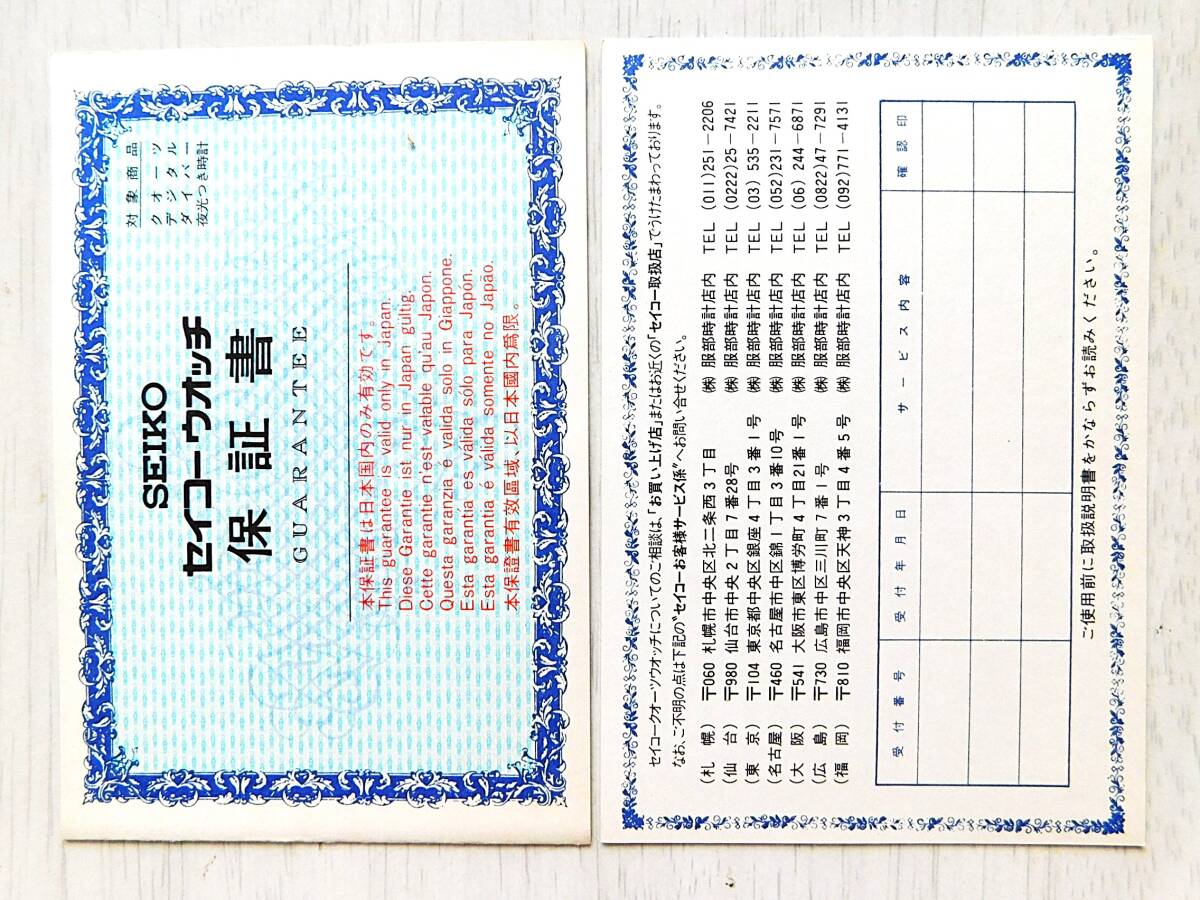 対象商品
クオーツ
デジタル
ダイバー
夜光つき時計
SEIKO
セイコーウオッチ
保証書
GUARANTEE
本保証書は日本国内のみ有効です。
This guarantee is valid only in Japan.
Diese Garantie ist nur in Japan gultig.
Cette garantie n'est valable qu'au Japon.
Questa garanzia e valida solo in Giappone.
Esta garantia es válida sólo para Japón.
Esta garantia é válida somente no Japão.
本保證書有效區域、以日本國内爲限。
セイコークオーツウオッチについてのご相談は、「お買い上げ店」またはお近くの「セイコー取扱店」でうけたまわっております。
なお、ご不明の点は下記の“セイコーお客様サービス係”へお問い合せください。
(札幌) 〒060 札幌市中央区北二条西3丁目 ㈱服部時計店内 TEL (011)251-2206
(仙台) 〒980 仙台市中央2丁目7番28号 ㈱服部時計店内 TEL (0222)25-7421
(東京) 〒104 東京都中央区銀座4丁目3番1号 ㈱服部時計店内 TEL (03)535-2211
(名古屋) 〒460 名古屋市中区錦1丁目3番10号 ㈱服部時計店内 TEL (052)231-7571
(大阪) 〒541 大阪市東区博労町4丁目21番1号 ㈱服部時計店内 TEL (06)244-6871
(広島) 〒730 広島市中区三川町7番1号 ㈱服部時計店内 TEL (0822)47-7291
(福岡) 〒810 福岡市中央区天神3丁目4番5号 ㈱服部時計店内 TEL (092)771-4131
受付番号 受付年月日 サービス内容 確認印
ご使用前に取扱説明書をかならずお読みください。